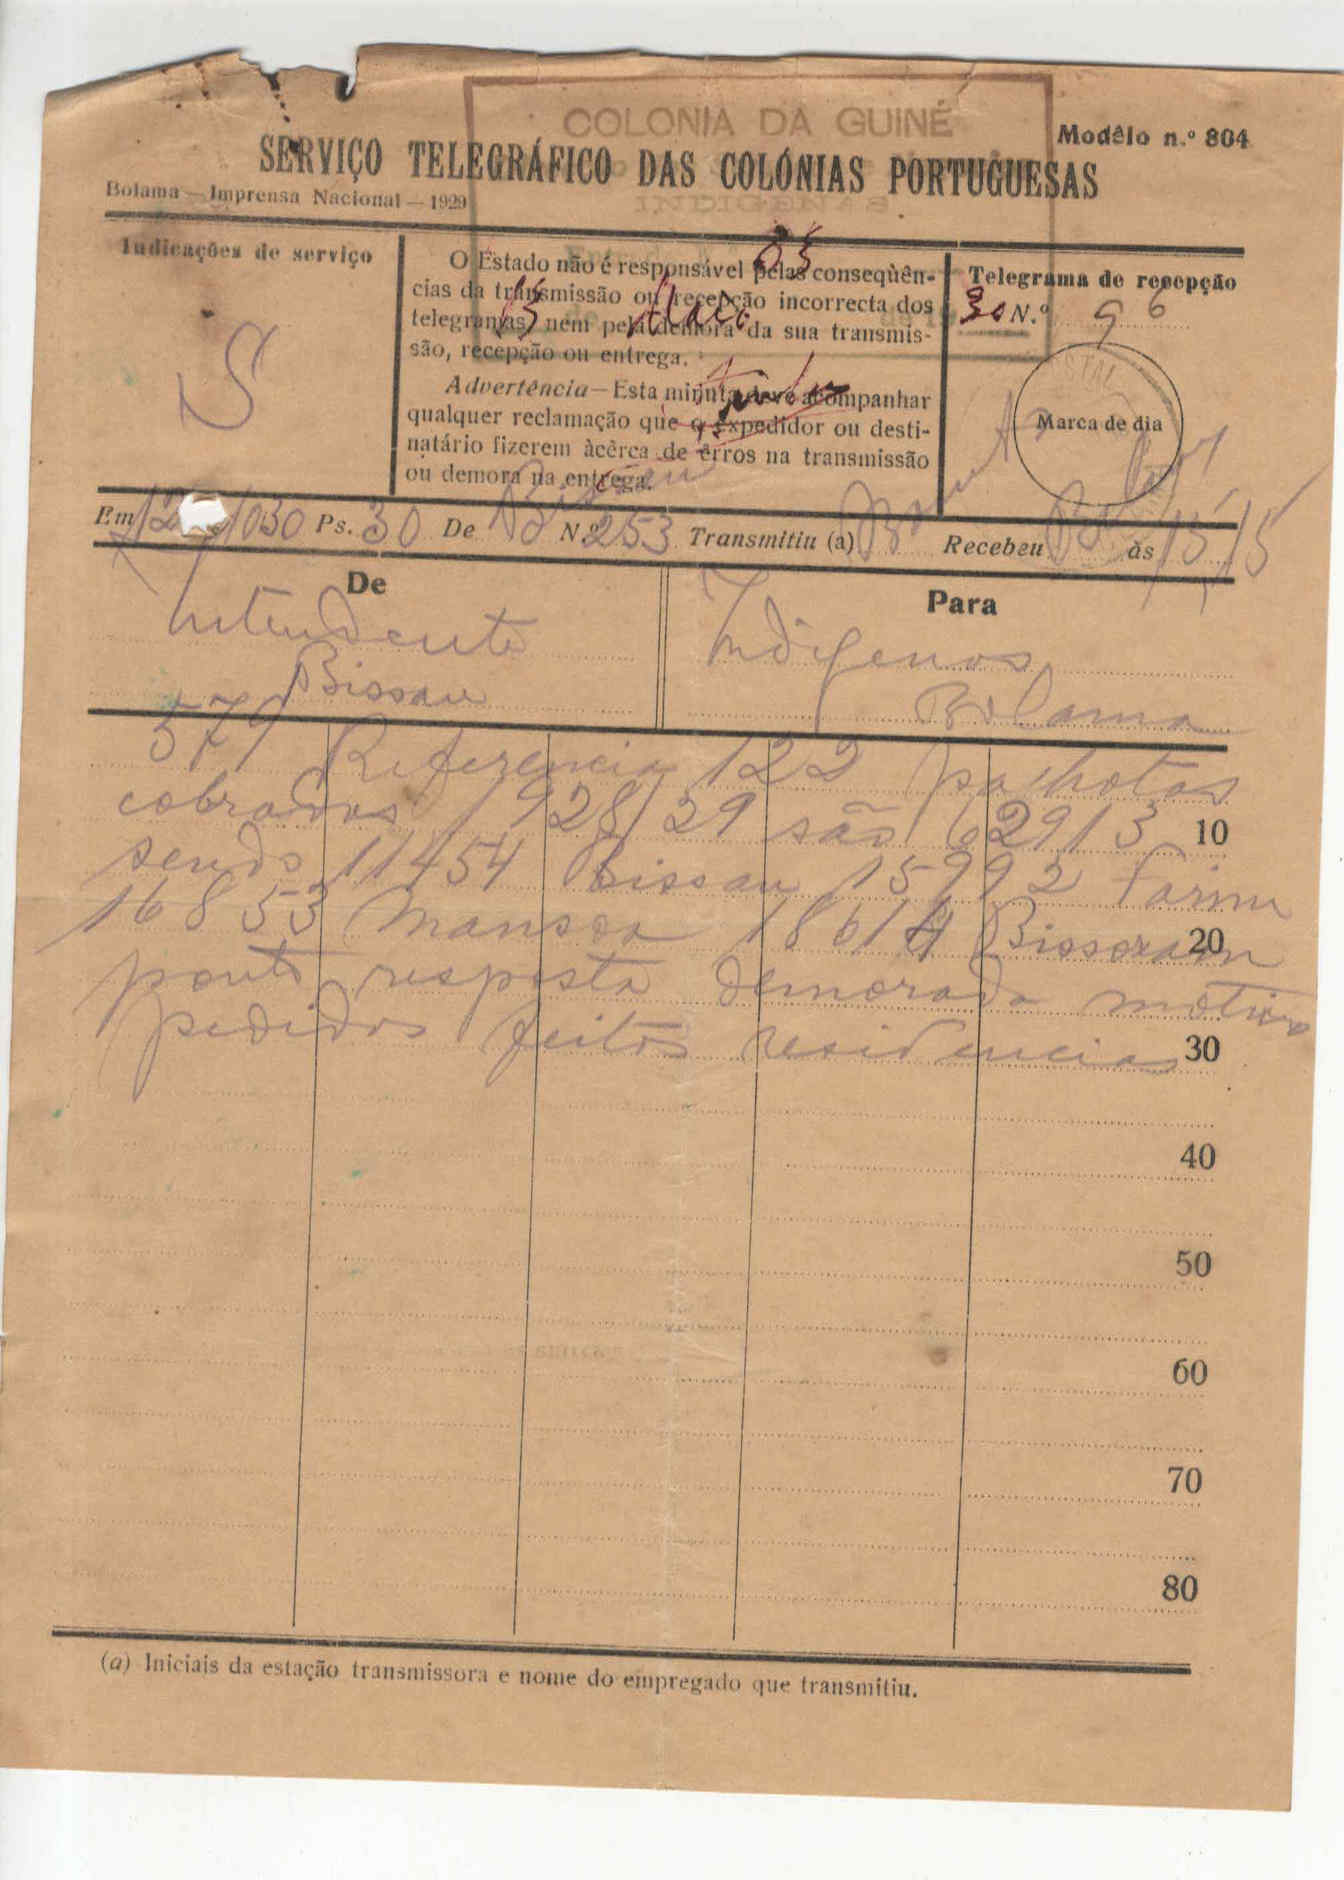 COLONIA DA GUINÉ
Modêlo n.º 804
SERVIÇO TELEGRÁFICO DAS COLÓNIAS PORTUGUESAS
Bolama — Imprensa Nacional — 1929
INDIGENAS
Indicações de serviço
S
O Estado não é responsável pelas conseqùên-
cias da transmissão ou recepção incorrecta dos
telegramas, nem pela demora da sua transmis-
são, recepção ou entrega.
Advertência — Esta minuta deve acompanhar
qualquer reclamação que o expedidor ou desti-
natário fizerem àcêrca de êrros na transmissão
ou demora na entrega.
Telegrama de recepção
30 N.º 96
Marca de dia
Em 12 1030 Ps. 30 De Bissau N.º 253 Transmitiu (a) Recebeu às 15/15
De
Intendente
Bissau
Para
Indigenas
Bolama
579 Referencia 122 palhotas
cobradas 1928/29 são 62913 10
sendo 11454 Bissau 15992 Farim
16853 Mansoa 18614 Bissoram 20
ponto resposta demorada motivo
pedidos feitos residencias 30
40
50
60
70
80
(a) Iniciais da estação transmissora e nome do empregado que transmitiu.